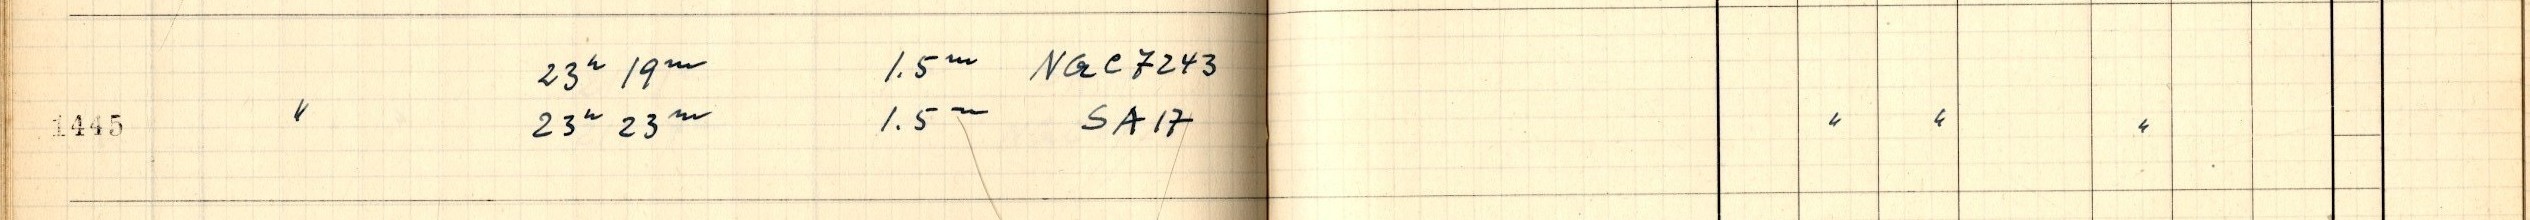 23ʰ 19ᵐ 1.5ᵐ NGC 7243
1445 " 23ʰ 23ᵐ 1.5ᵐ SA 17 " " "